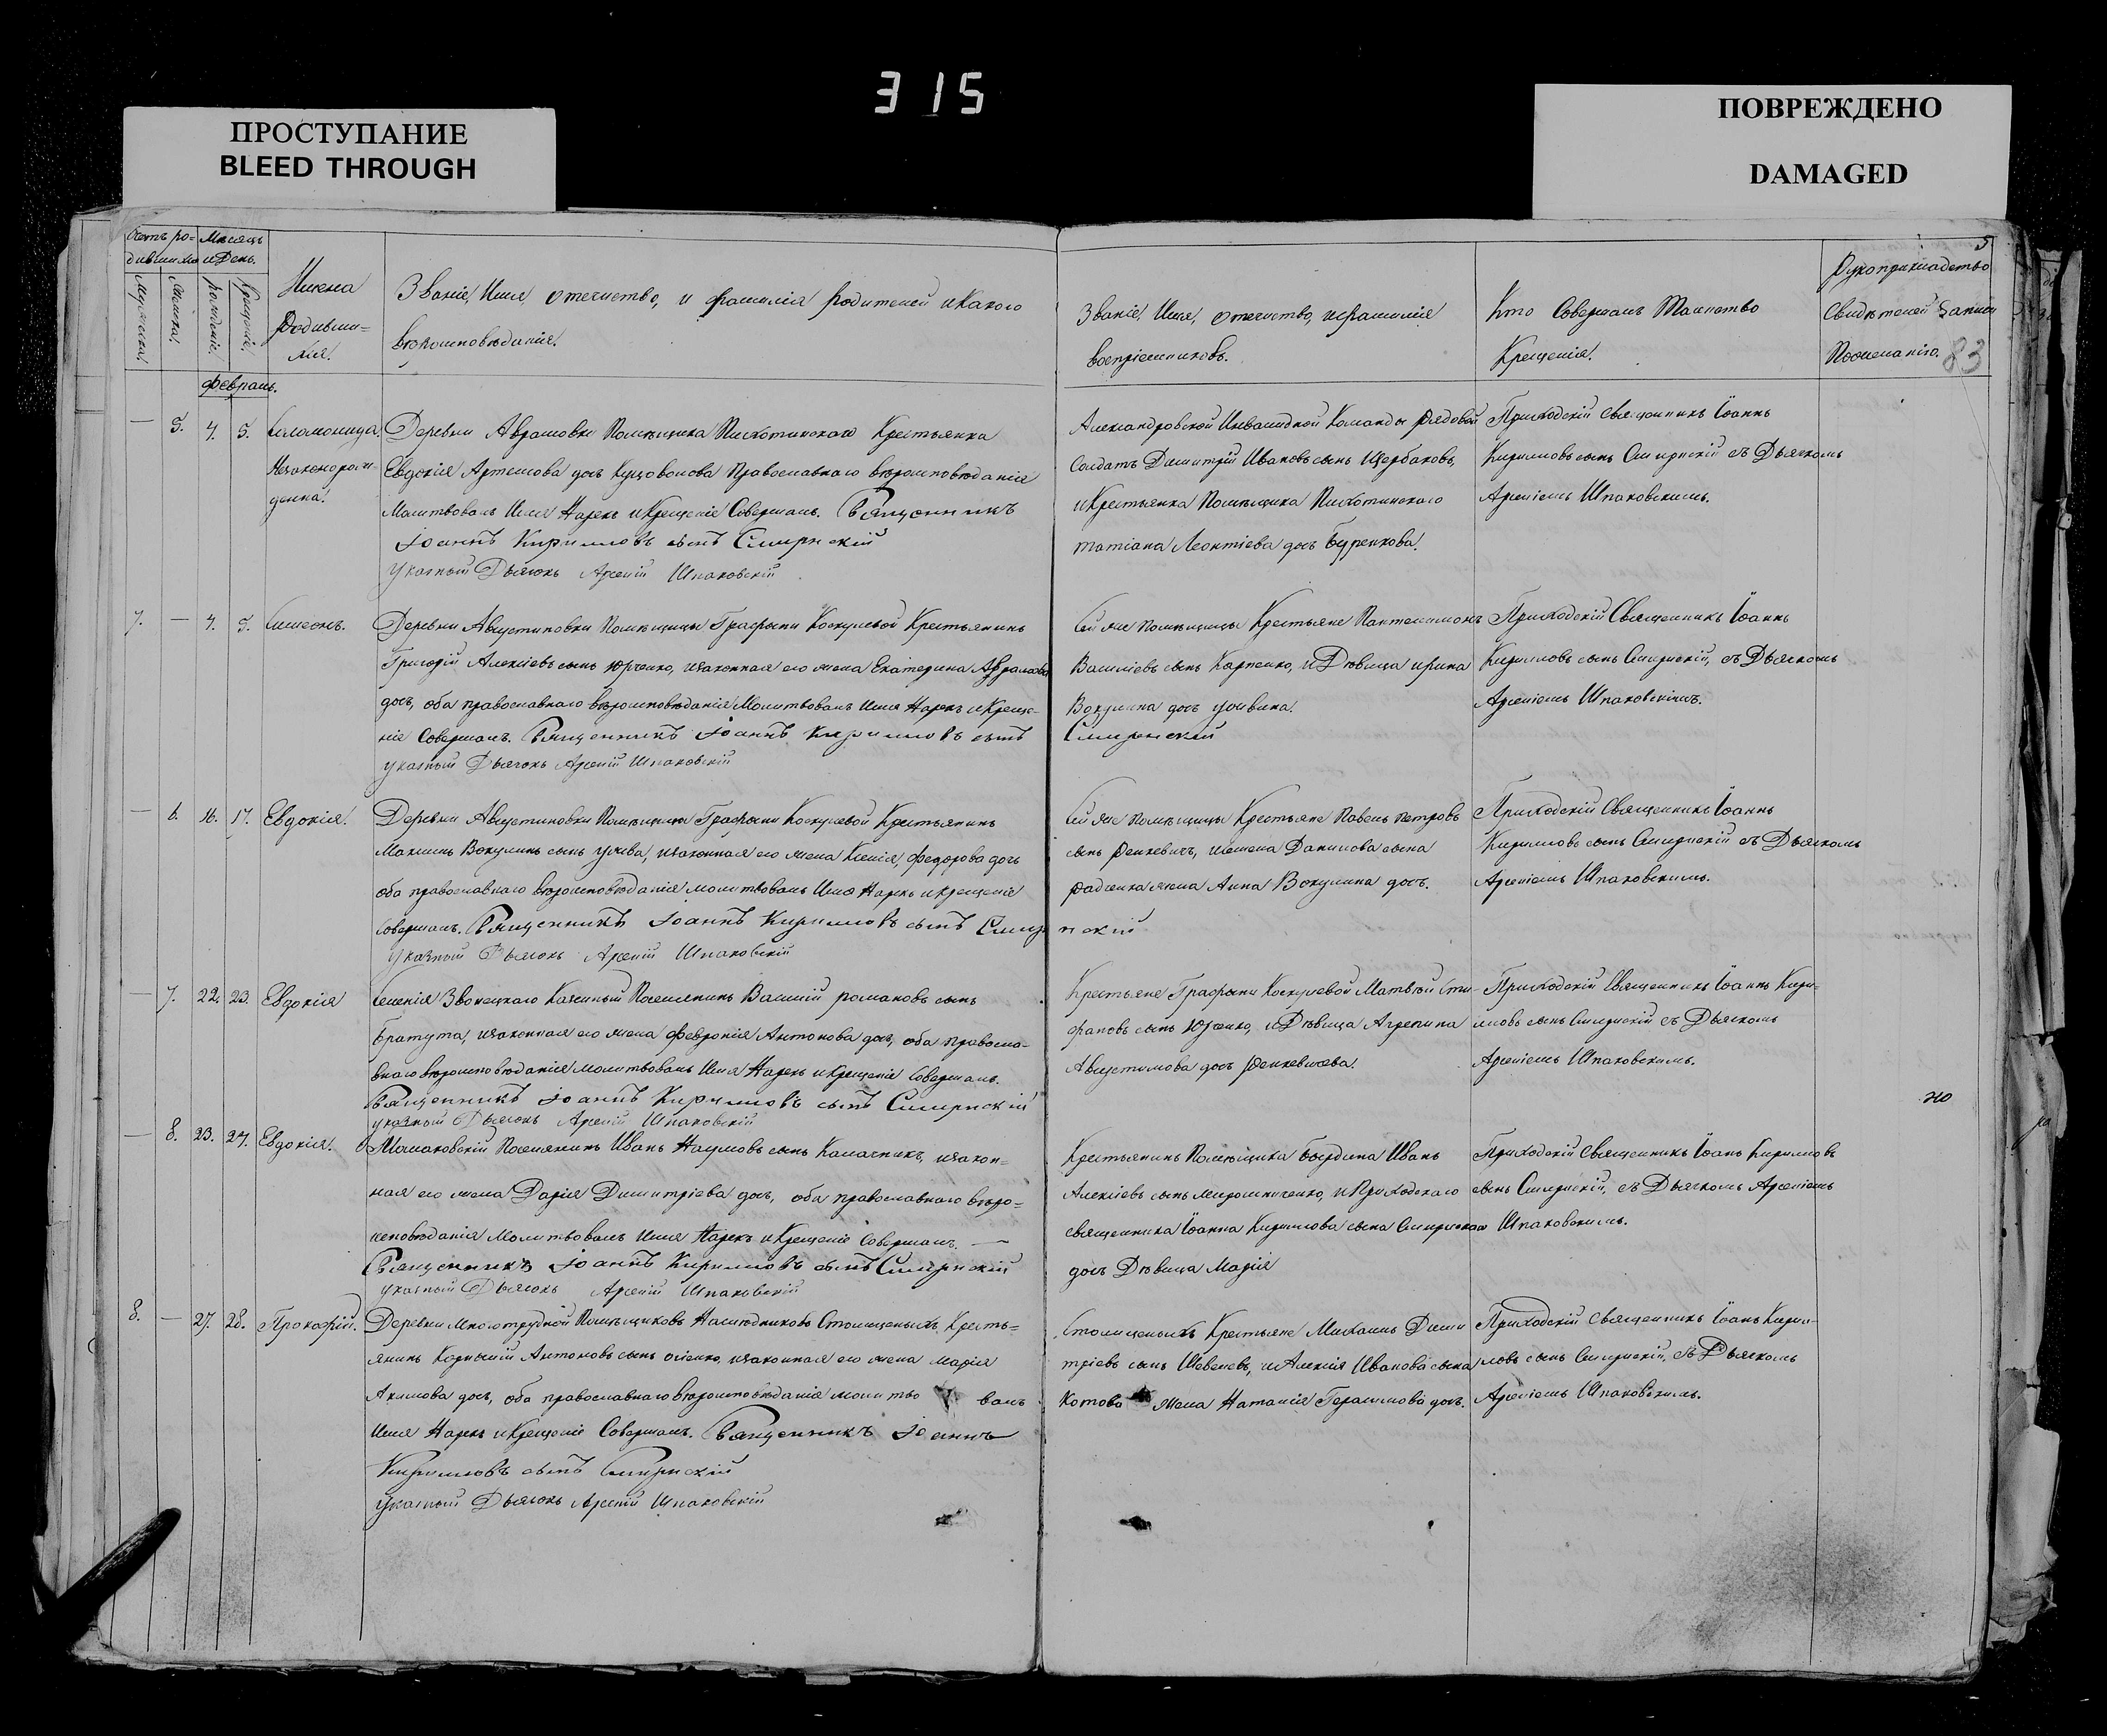 315
ПРОСТУПАНИЕ
BLEED THROUGH
ПОВРЕЖДЕНО
DAMAGED
5
83
Счетъ ро-
дившихся
Мѣсяцъ
и День.
Мужеска.
Женска.
рожденіе.
Крещеніе.
Имена
Родивши-
хся.
Званіе, Имя отечество, и фамилія родителей и Какого
вѣроисповѣданія.
Званіе, Имя, отечество, и фамилія
воспріемниковъ.
Кто Совершалъ Таинство
Крещенія.
Рукоприкладство
Свидѣтелей Записи
По желанію.
февраль.
— 5. 4. 5.
незаконорож-
денна.
Деревни Аврамовки Помѣщика Пихотинскаго Крестьянка
Евдокія Артемова дочь Православнаго вѣроисповѣданія
Молитвовалъ Имя Нарекъ и Крещеніе Совершалъ. Священникъ
Іоаннъ Кирилловъ сынъ Смирнскій
указный Дьячокъ Арсеній Шпаковскій
Александровской Инвалидной Команды рядовой
Солдатъ Димитрій Ивановъ сынъ Щербаковъ,
и Крестьянка Помѣщика Пихотинскаго
татіана Леонтіева дочь Буренкова.
Приходскій священникъ Іоаннъ
Кирилловъ сынъ Смирнскій съ Дьячкомъ
Арсеніемъ Шпаковскимъ.
7. — 4. 5. Симеонъ.
Деревни Августиновки Помѣщицы Графыни Коскулевой Крестьянинъ
Григорій Алексіевъ сынъ Юрченко, и законная его жена Екатерина Аврамова
дочь, оба православнаго вѣроисповѣданія Молитвовалъ Имя Нарекъ и Креще-
ніе Совершалъ. Священникъ Іоаннъ Кирилловъ сынъ
Смирнскій
указный Дьячокъ Арсеній Шпаковскій
Сей же помѣщицы Крестьяне Пантелеимонъ
Васильевъ сынъ Карпенко, и Дѣвица ирина
Вокулина дочь
Приходскій Священникъ Іоаннъ
Кирилловъ сынъ Смирнскій, съ Дьячкомъ
Арсеніемъ Шпаковскимъ.
— 6. 16. 17. Евдокія.
Деревни Августиновки Помѣщицы Графыни Коскулевой Крестьянинъ
Максимъ Вокулинъ сынъ и законная его жена Ксенія, федорова дочь
оба православнаго вѣроисповѣданія молитвовалъ Имя Нарекъ и Крещеніе
Совершалъ. Священникъ Іоаннъ Кирилловъ сынъ Смирнскій
указный Дьячокъ Арсеній Шпаковскій
Сей же помѣщицы Крестьяне Павелъ петровъ
сынъ Данилова сына
радченка жена Анна Вокулина дочь.
Приходскій Священникъ Іоаннъ
Кирилловъ сынъ Смирнскій съ Дьячкомъ
Арсеніемъ Шпаковскимъ.
— 7. 22. 23. Евдокія
Селенія Звонецкаго Казенный Поселянинъ Василій романовъ сынъ
братута, и законная его жена Февронія Антонова дочь, оба правосла-
внаго вѣроисповѣданія молитвовалъ Имя Нарекъ и Крещеніе Совершалъ.
Священникъ Іоаннъ Кирилловъ сынъ Смирнскій
указный Дьячокъ Арсеній Шпаковскій
Крестьяне Графыни Коскулевой Матвѣй Сти-
фановъ сынъ Юрченко, и Дѣвица Агрепина
Августимова дочь
Приходскій Священникъ Іоаннъ Кири-
лловъ сынъ Смирнскій съ Дьячкомъ
Арсеніемъ Шпаковскимъ.
— 8. 23. 24. Евдокія.
Поселянинъ Иванъ Наумовъ сынъ Калачникъ, и закон-
ная его жена Дарія Димитріева дочь, оба православнаго вѣро-
исповѣданія Молитвовалъ Имя Нарекъ и Крещеніе Совершалъ. —
Священникъ Іоаннъ Кирилловъ сынъ Смирнскій
указный Дьячокъ Арсеній Шпаковскій
Крестьянинъ Помѣщика Бырдина Иванъ
Алексіевъ сынъ Мирошниченко, и Приходскаго
священника Іоанна Кирилова сына Смирнскаго
дочь Дѣвица Марія
Приходскій Священникъ Іоанъ Кирилловъ
сынъ Смирнскій, съ Дьячкомъ Арсеніемъ
Шпаковскимъ.
8. — 27. 28. Прокофій.
Деревни Многотрудной Помѣщиковъ Наслѣдниковъ Крестъ-
янинъ Корнилій Антоновъ сынъ и законная его жена марія
Акимова дочь, оба православнаго вѣроисповѣданія молитво валъ
Имя Нарекъ и Крещеніе Совершалъ. Священникъ Іоаннъ
Кирилловъ сынъ Смирнскій
указный Дьячокъ Арсеній Шпаковскій
Крестьяне Михаилъ Дими
тріевъ сынъ Шевелевъ, и Алексія Иванова сына
Котова жена Наталія Герасимова дочь.
Приходскій Священникъ Іоанъ Кири-
ловъ сынъ Смирнскій, съ Дьячкомъ
Арсеніемъ Шпаковскимъ.